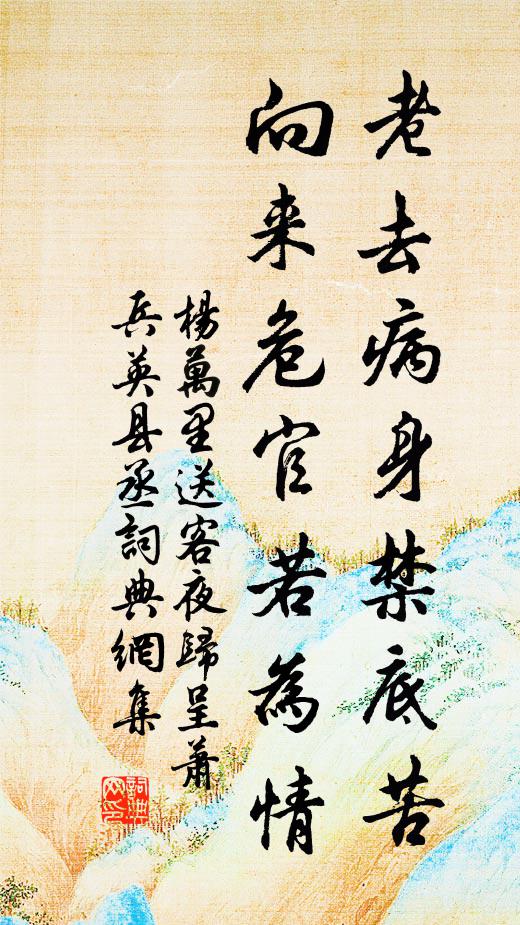 老去病身禁底苦
向来危官若為情
楊萬里送客夜歸呈蕭
兵英县丞詞典網集
詞典网印